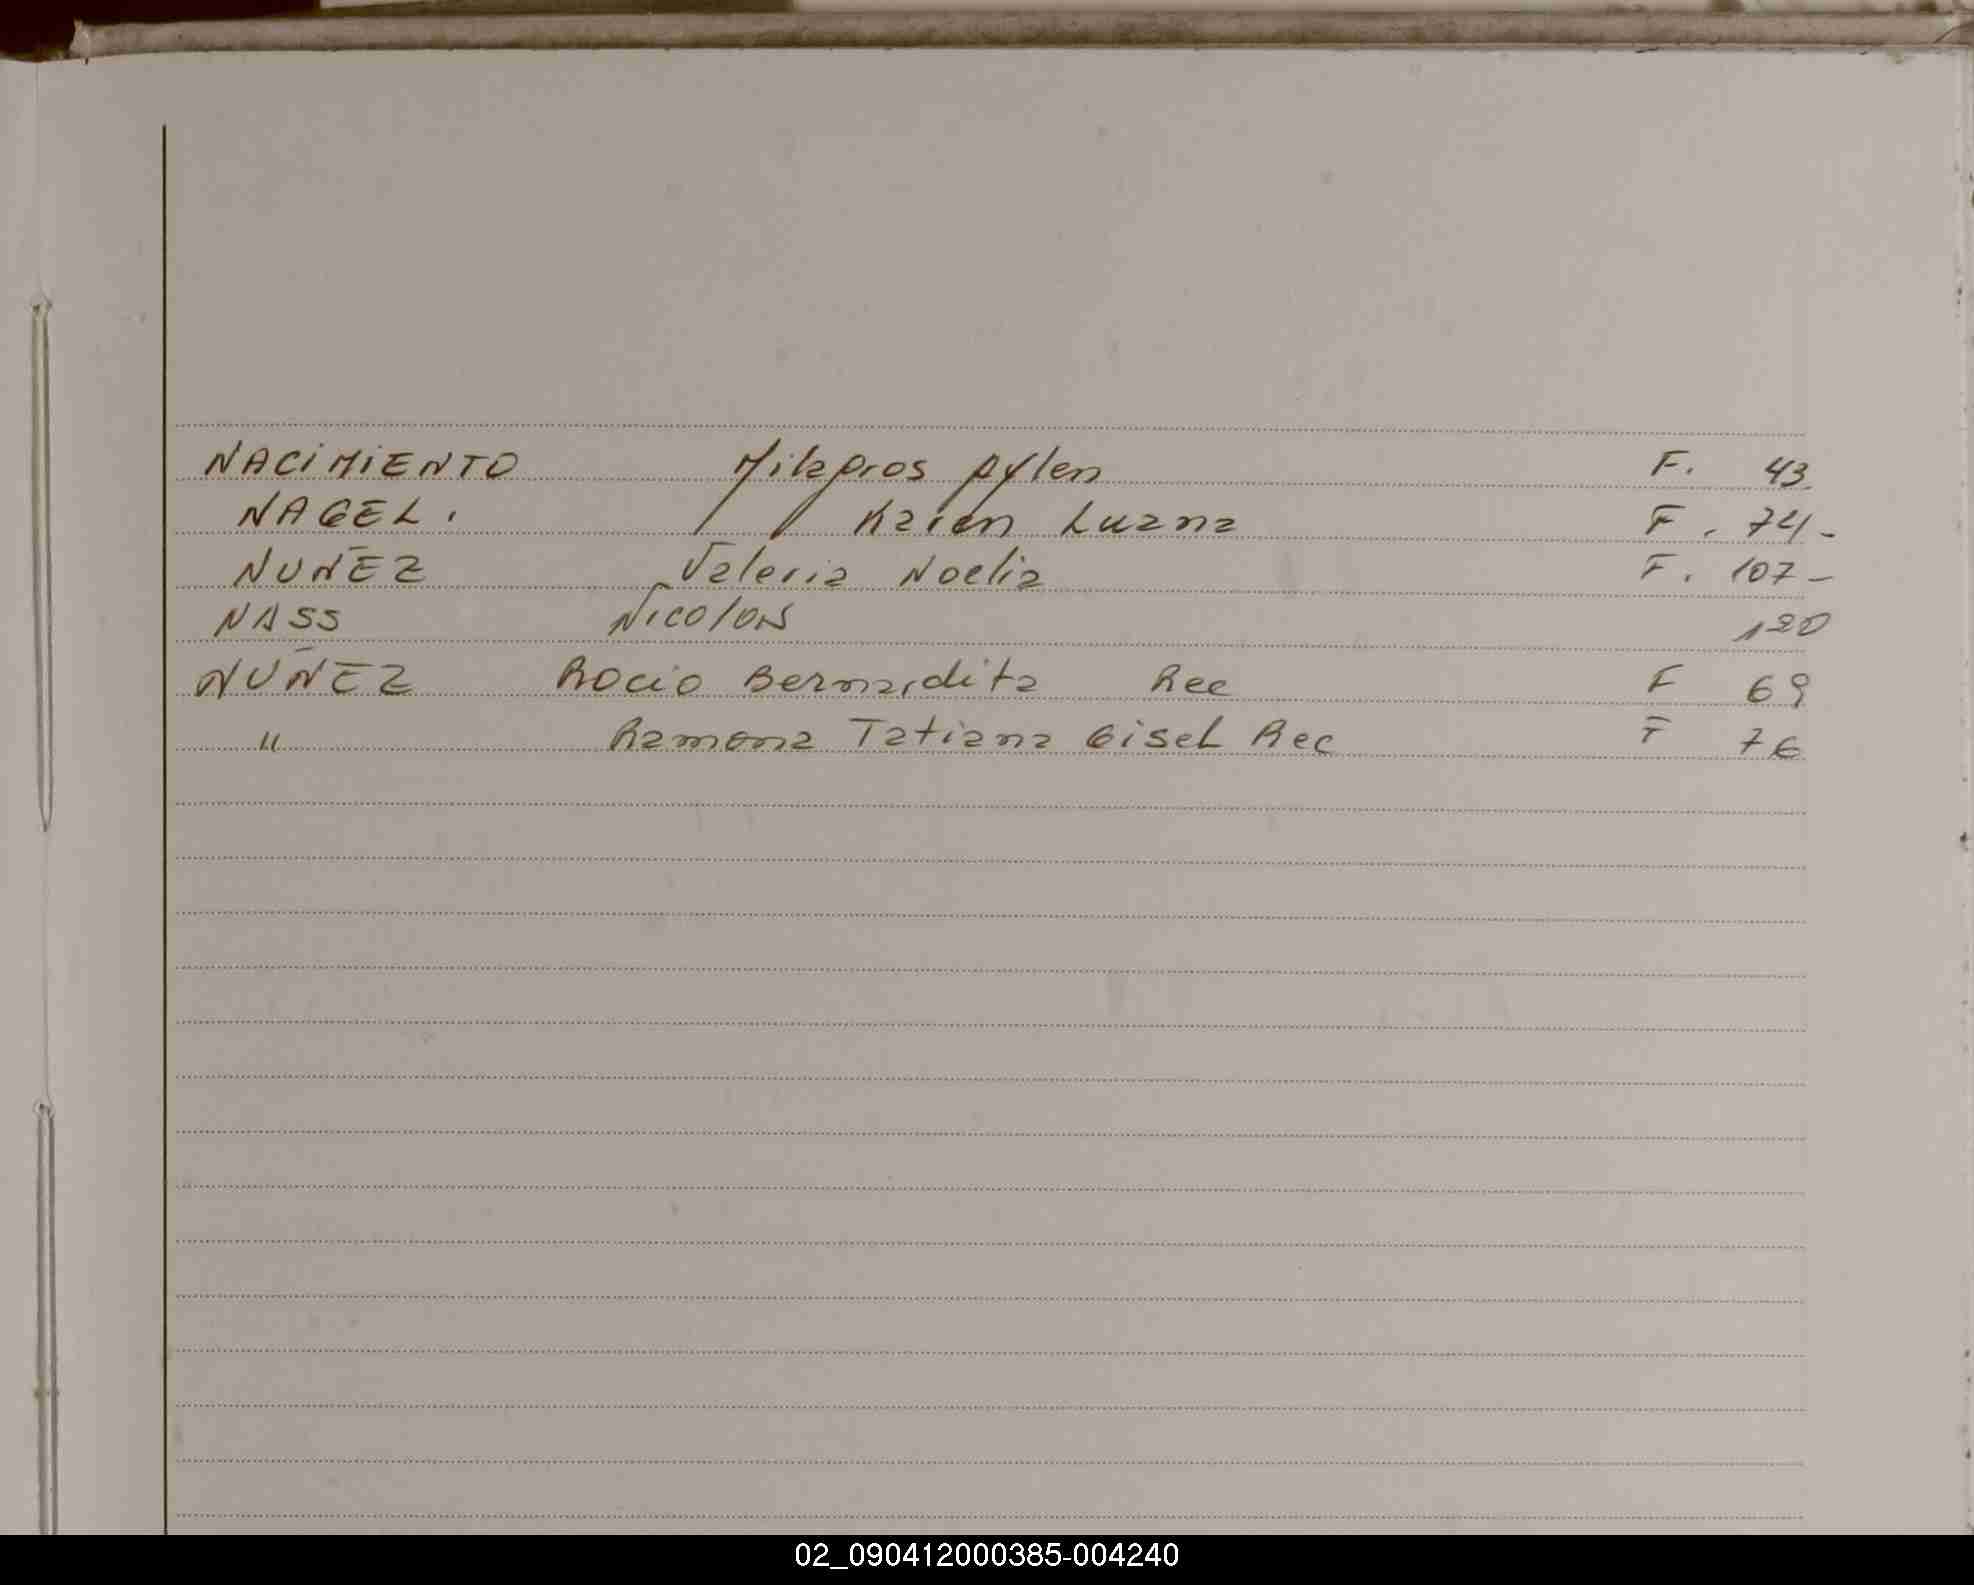 NACIMIENTO Milagros Aylen F. 43
NAGEL. Karen Luana F. 74-
NUÑEZ Valeria Noelia F. 107-
NASS Nicolas 120
NUÑEZ Rocio Bernardita Rec F 69
" Ramona Tatiana Gisel Rec F 76
02_090412000385-004240